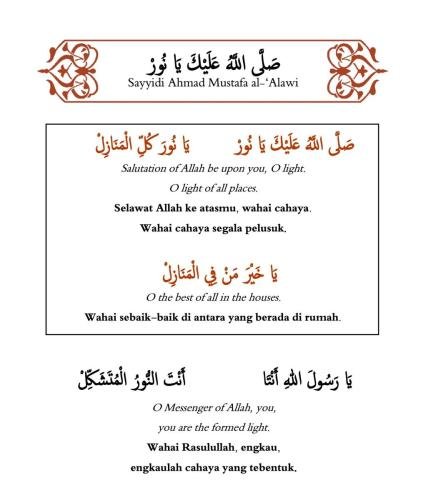 صَلَّى اللهُ عَلَيْكَ يَا نُورْ
Sayyidi Ahmad Mustafa al-‘Alawi
صَلَّى اللهُ عَلَيْكَ يَا نُورْ يَا نُورَ كُلِّ الْمَنَازِلْ
Salutation of Allah be upon you, O light.
O light of all places.
Selawat Allah ke atasmu, wahai cahaya.
Wahai cahaya segala pelusuk.
يَا خَيْرَ مَنْ فِي الْمَنَازِلْ
O the best of all in the houses.
Wahai sebaik-baik di antara yang berada di rumah.
يَا رَسُولَ اللهِ أَنْتَا أَنْتَ النُّورُ الْمُتَشَكِّلْ
O Messenger of Allah, you,
you are the formed light.
Wahai Rasulullah, engkau,
engkaulah cahaya yang tebentuk.